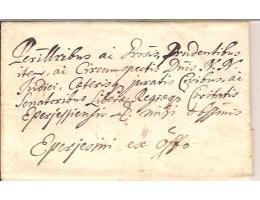 Perillribus ac Prosis, Prudentibus
item, ac Circumspectis Dnis N. N.
Judici, Caeterisq juratis Civibus, ac
Senatoribus Liberae Regiaeq Civitatis
Epesjessiensis D. mihi obssmis
Epesjesini ex offo